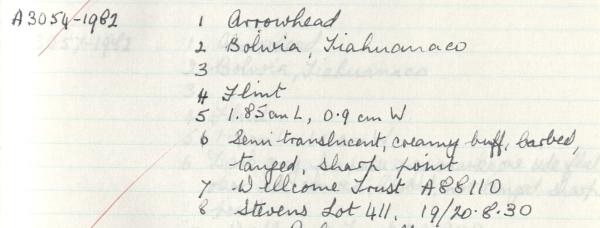 A3054-1982 1 Arrowhead
2 Bolivia, Tiahuanaco
3
4 Flint
5 1.85 cm L, 0.9 cm W
6 Semi translucent, creamy buff, barbed,
tanged, sharp point
7 Wellcome Trust A88110
8 Stevens Lot 411, 19/20.8.30